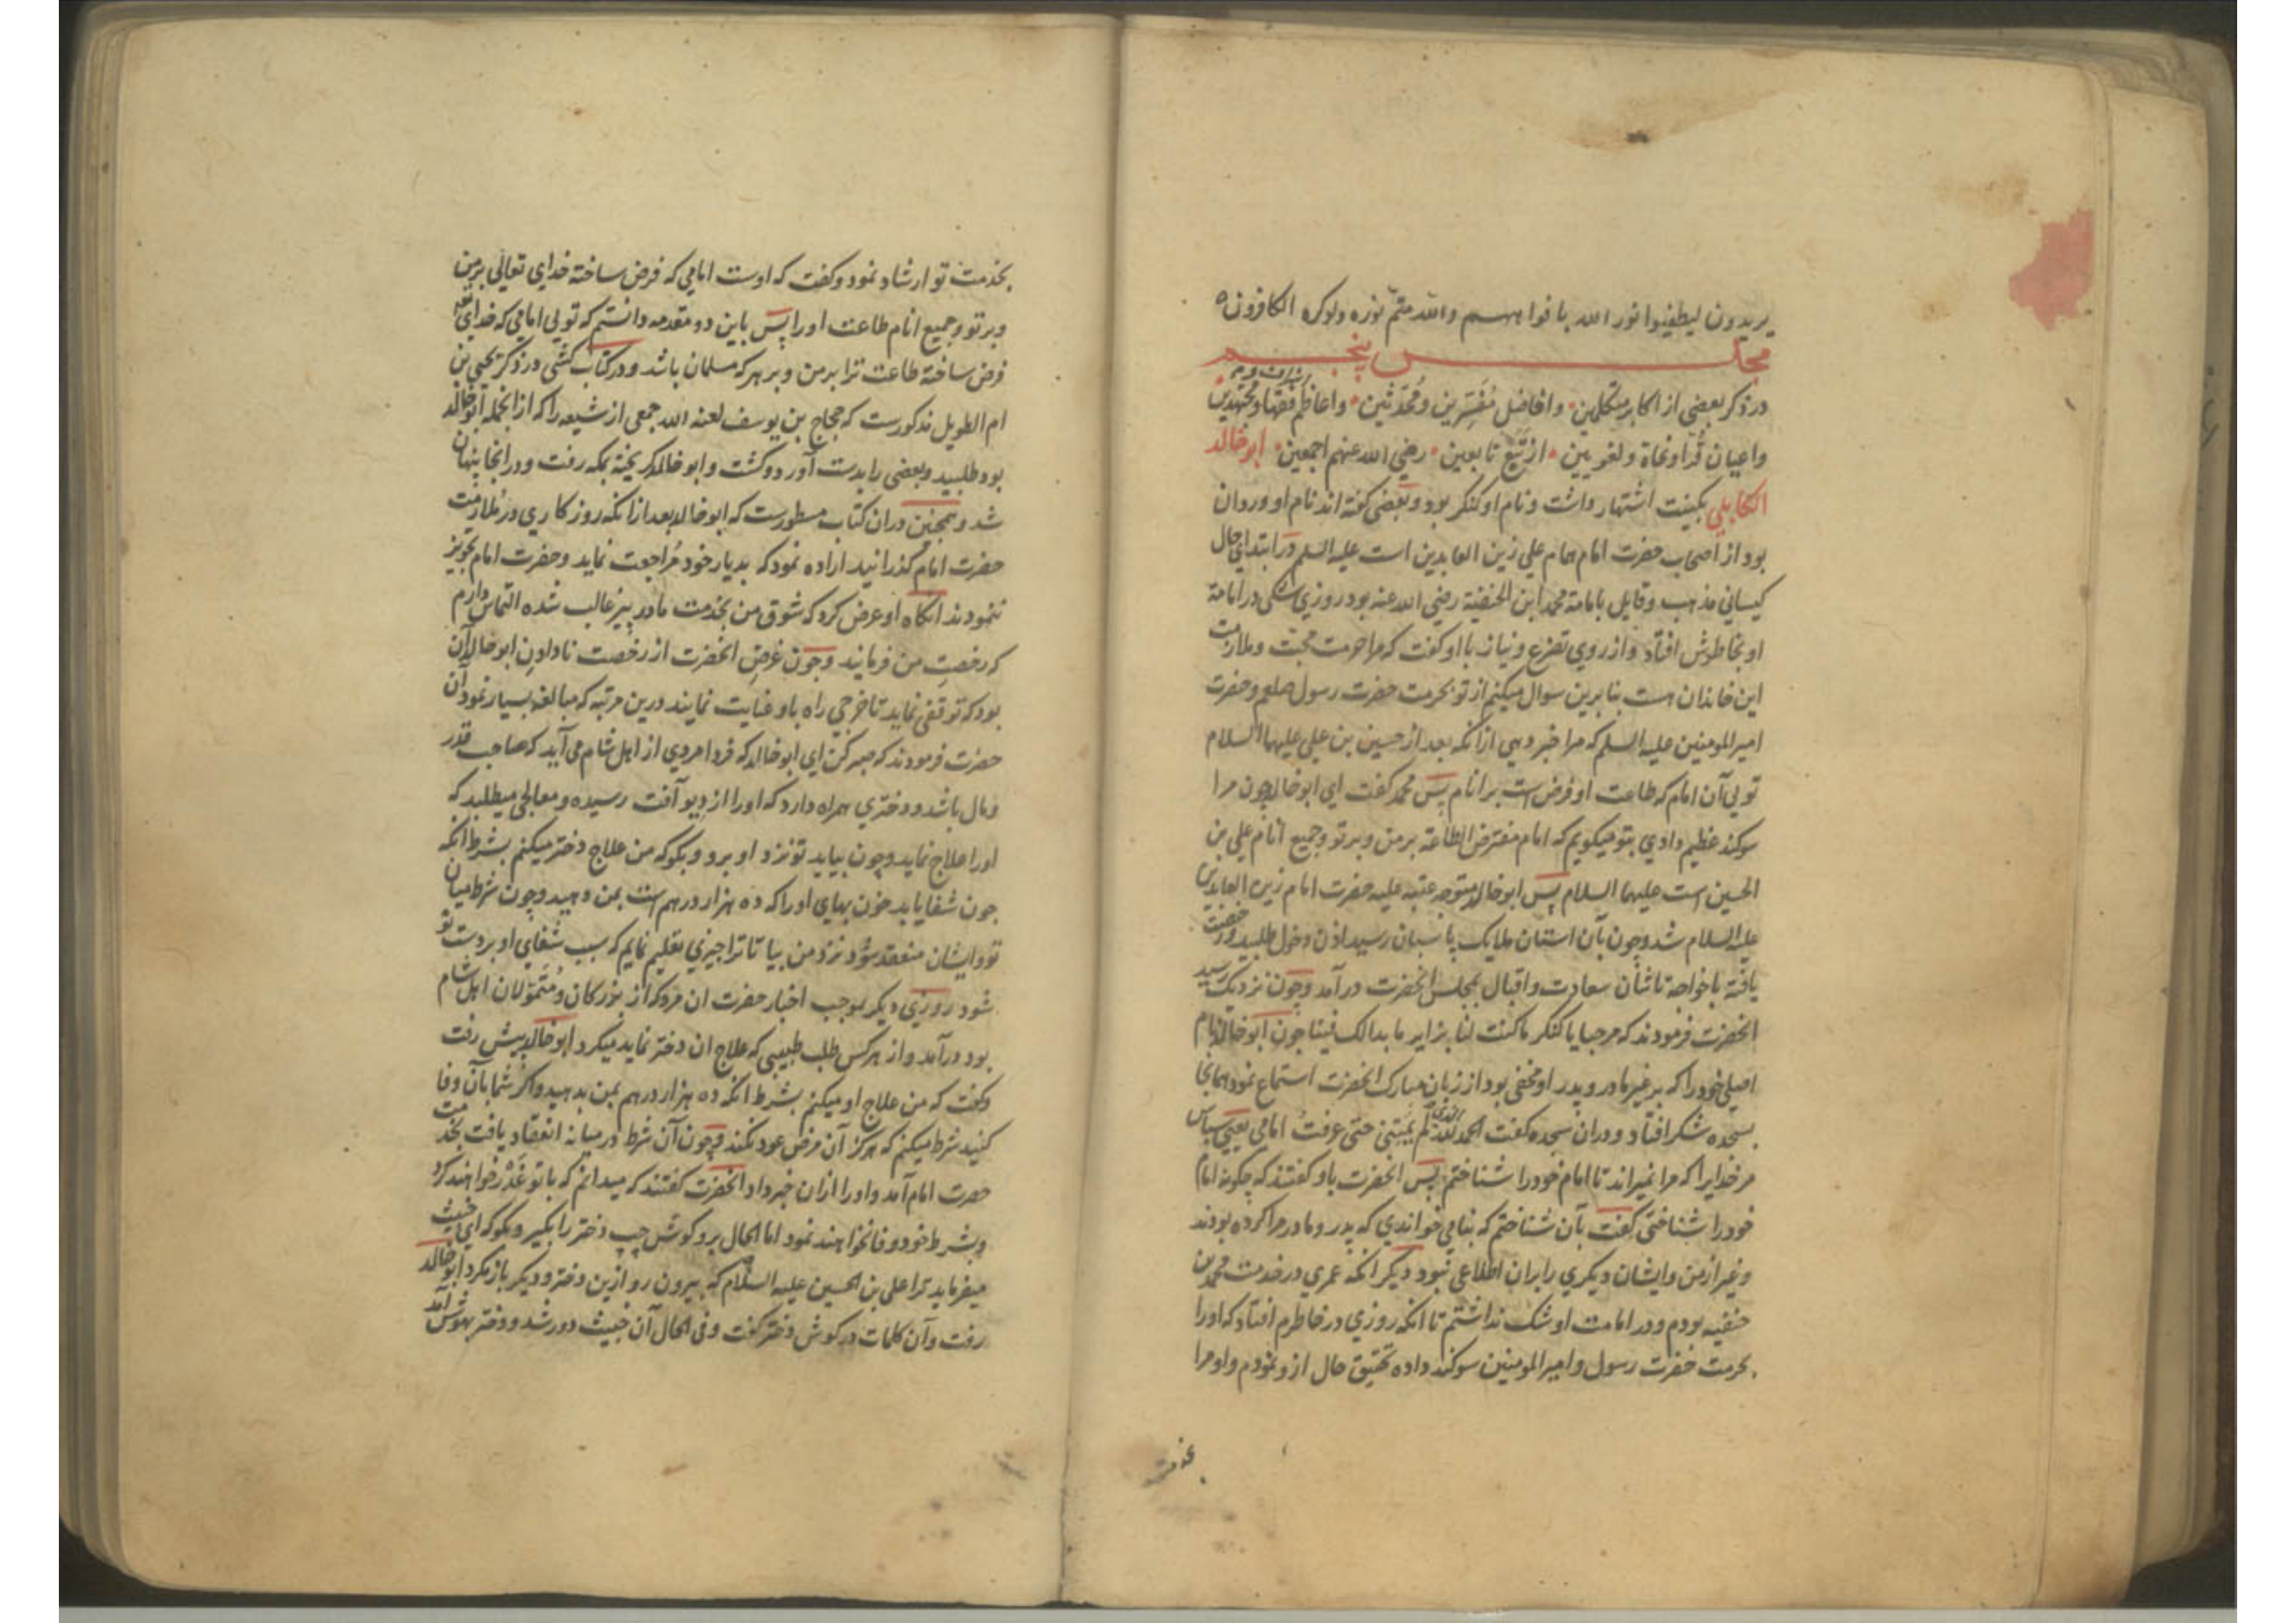 يريدون ليطفئوا نور الله بافواههم والله متم نوره ولوكره الكافرون
مجلس پنجم
در ذكر بعضى از اكابر متكلمين وافاضل مفسرين ومحدثين واعاظم فقها ومجتهدين
واعيان قرا ونحاة ولغويين از تبع تابعين رضي الله عنهم اجمعين ابو خالد
الكابلي بكنيت اشتهار داشت ونام او كنكر بود وبعضى كفته اند نام او وردان
بود از اصحاب حضرت امام همام علي زين العابدين است عليه السلم در ابتداي حال
كيساني مذهب وقايل بامامة محمد ابن الحنفية رضي الله عنه بود روزي شكى در امامة
او بخاطرش افتاد واز روي تضرع ونياز با او كفت كه مرا حرمت محبت وملازمت
اين خاندان هست بنابرين سوال ميكنم از تو بحرمت حضرت رسول صلعم وحضرت
امير المومنين عليه السلم كه مرا خبر دهي از انكه بعد از حسين بن علي عليهما السلام
تويى آن امام كه طاعت او فرض است بر انام پس محمد كفت اي ابو خالد چون مرا
سوكند عظيم دادي بتو ميكويم كه امام مفترض الطاعة بر من وبر تو وجميع انام علي بن
الحسين است عليهما السلام پس ابو خالد متوجه عتبه عليه حضرت امام زين العابدين
عليه السلام شد وچون بآن استان ملايك پاسبان رسيد اذن دخول طلبيد ورخصت
يافته باخواجه تاشان سعادت واقبال بمجلس انحضرت در آمد وچون نزديك رسيد
انحضرت فرمودند كه مرحبا يا كنكر ما كنت لنا بزاير ما بدا لك فينا چون ابو خالد نام
اصلى خود را كه بر غير مادر وپدر او مخفى بود از زبان مبارك انحضرت استماع نمود همانجا
بسجده شكر افتاد ودران سجده كفت الحمد لله الذي لم يمتني حتى عرفت امامي يعني سپاس
مر خدايرا كه مرا نميراند تا امام خود را شناختم پس انحضرت باو كفتند كه چكونه امام
خود را شناختى كفت بآن شناختم كه بنامي خواندي كه پدر ومادر مرا كرده بودند
وغير از من وايشان ديكري را بران اطلاعى نبود ديكر انكه عمري در خدمت محمد بن
حنفيه بودم ودر امامت او شك نداشتم تا انكه روزي در خاطرم افتاد كه او را
بحرمت حضرت رسول وامير المومنين سوكند داده تحقيق حال ازو نمودم واو مرا
بخدمت
بخدمت تو ارشاد نمود وكفت كه اوست امامي كه فرض ساخته خداي تعالى بر من
وبر تو وجميع انام طاعت او را پس باين دو مقدمه دانستم كه تويى امامي كه خداي تعالى
فرض ساخته طاعت ترا بر من وبر هر كه مسلمان باشد ودر كتاب كشى در ذكر يحيى بن
ام الطويل مذكورست كه حجاج بن يوسف لعنه الله جمعى از شيعه را كه از انجمله ابو خالد
بود طلبيد وبعضى را بدست آورد وكشت وابو خالد كريخته بمكه رفت ودر انجا پنهان
شد وهمچنين دران كتاب مسطورست كه ابو خالد بعد از انكه روزكاري در ملازمت
حضرت امام كذرانيد اراده نمود كه بديار خود مراجعت نمايد وحضرت امام تجويز
ننمودند انكاه او عرض كرد كه شوق من بخدمت مادر پير غالب شده التماس دارم
كه رخصت من فرمايند وچون غرض انحضرت از رخصت نادادن ابو خالد آن
بود كه توقفى نمايد تا خرجي راه باو عنايت نمايند درين مرتبه كه مبالغه بسيار نمود آن
حضرت فرمودند كه صبر كن اي ابو خالد كه فردا مردي از اهل شام مى آيد كه صاحب قدر
ومال باشد ودختري همراه دارد كه او را از ديو آفت رسيده ومعالجى ميطلبد كه
او را علاج نمايد وچون بيايد تو نزد او برو وبكو كه من علاج دختر ميكنم بشرط انكه
چون شفا يابد خون بهاي او را كه ده هزار درهم است بمن دهيد وچون شرط ميان
تو وايشان منعقد شود نزد من بيا تا ترا چيزي تعليم نمايم كه سبب شفاي او بر دست تو
شود روزي ديكر بموجب اخبار حضرت ان مرد كه از بزركان ومتمولان اهل شام
بود در آمد واز هر كس طلب طبيبى كه علاج ان دختر نمايد ميكرد ابو خالد پيش رفت
وكفت كه من علاج او ميكنم بشرط انكه ده هزار درهم بمن بدهيد واكر شما بآن وفا
كنيد شرط ميكنم كه هركز آن مرض عود نكند وچون آن شرط در ميانه انعقاد يافت بخدمت
حضرت امام آمد واو را ازان خبر داد انحضرت كفتند كه ميدانم كه با تو غدر خواهند كرد
وبشرط خود وفا نخواهند نمود اما الحال برو كوش چپ دختر را بكير وبكو كه اي خبيث
ميفرمايد ترا علي بن الحسين عليه السلام كه بيرون رو ازين دختر وديكر باز مكرد ابو خالد
رفت وآن كلمات در كوش دختر كفت وفى الحال آن خبيث دور شد ودختر بهوش آمد